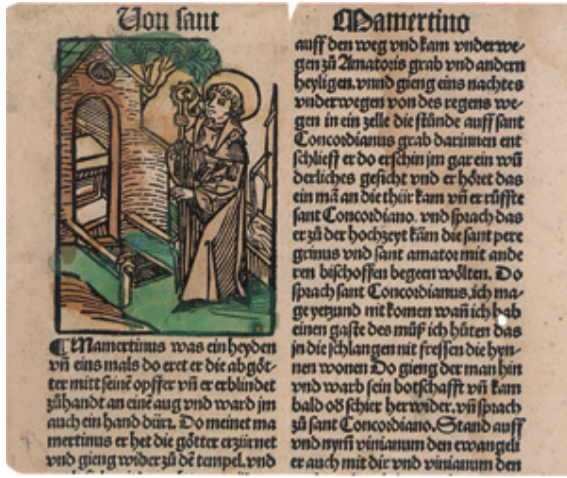 Von sant Mamertino
¶Mamertinus was ein heyden
vñ eins mals do eret er die abgöt-
ter mitt seinē opffer vñ er erblindet
zůhandt an einē aug vnd ward jm
auch ein hand dürꝛ. Do meinet ma
mertinus er het die götter erzürnet
vnd gieng wider zů dē tempel. vnd
auff den weg vnd kam vnderwe-
gen zů Amatoris grab vnd andern
heyligen. vnnd gieng eins nachtes
vnderwegen von des regens we-
gen in ein zelle die stůnde auff sant
Concordianus grab darinnen ent
schlieff er do erschin jm gar ein wū
derliches gesicht vnd er höret das
ein mā an die thür kam vñ er růffte
sant Concordiano. vnd sprach das
er zů der hochzeyt käm die sant pere
grinus vnd sant amator mit ande
ren bischoffen begeen wölten. Do
sprach sant Concordianus. ich ma-
ge yetzund nit komen wañ ich hab
einen gaste des můß ich hüten das
jn die schlangen nit fressen die hyn-
nen wonen Do gieng der man hin
vnd warb sein botschafft vñ kam
bald oď schier herwider. vñ sprach
zů sant Concordiano. Stand auff
vnd nym vinianum den ewangeli
er auch mit dir vnd vinianum den